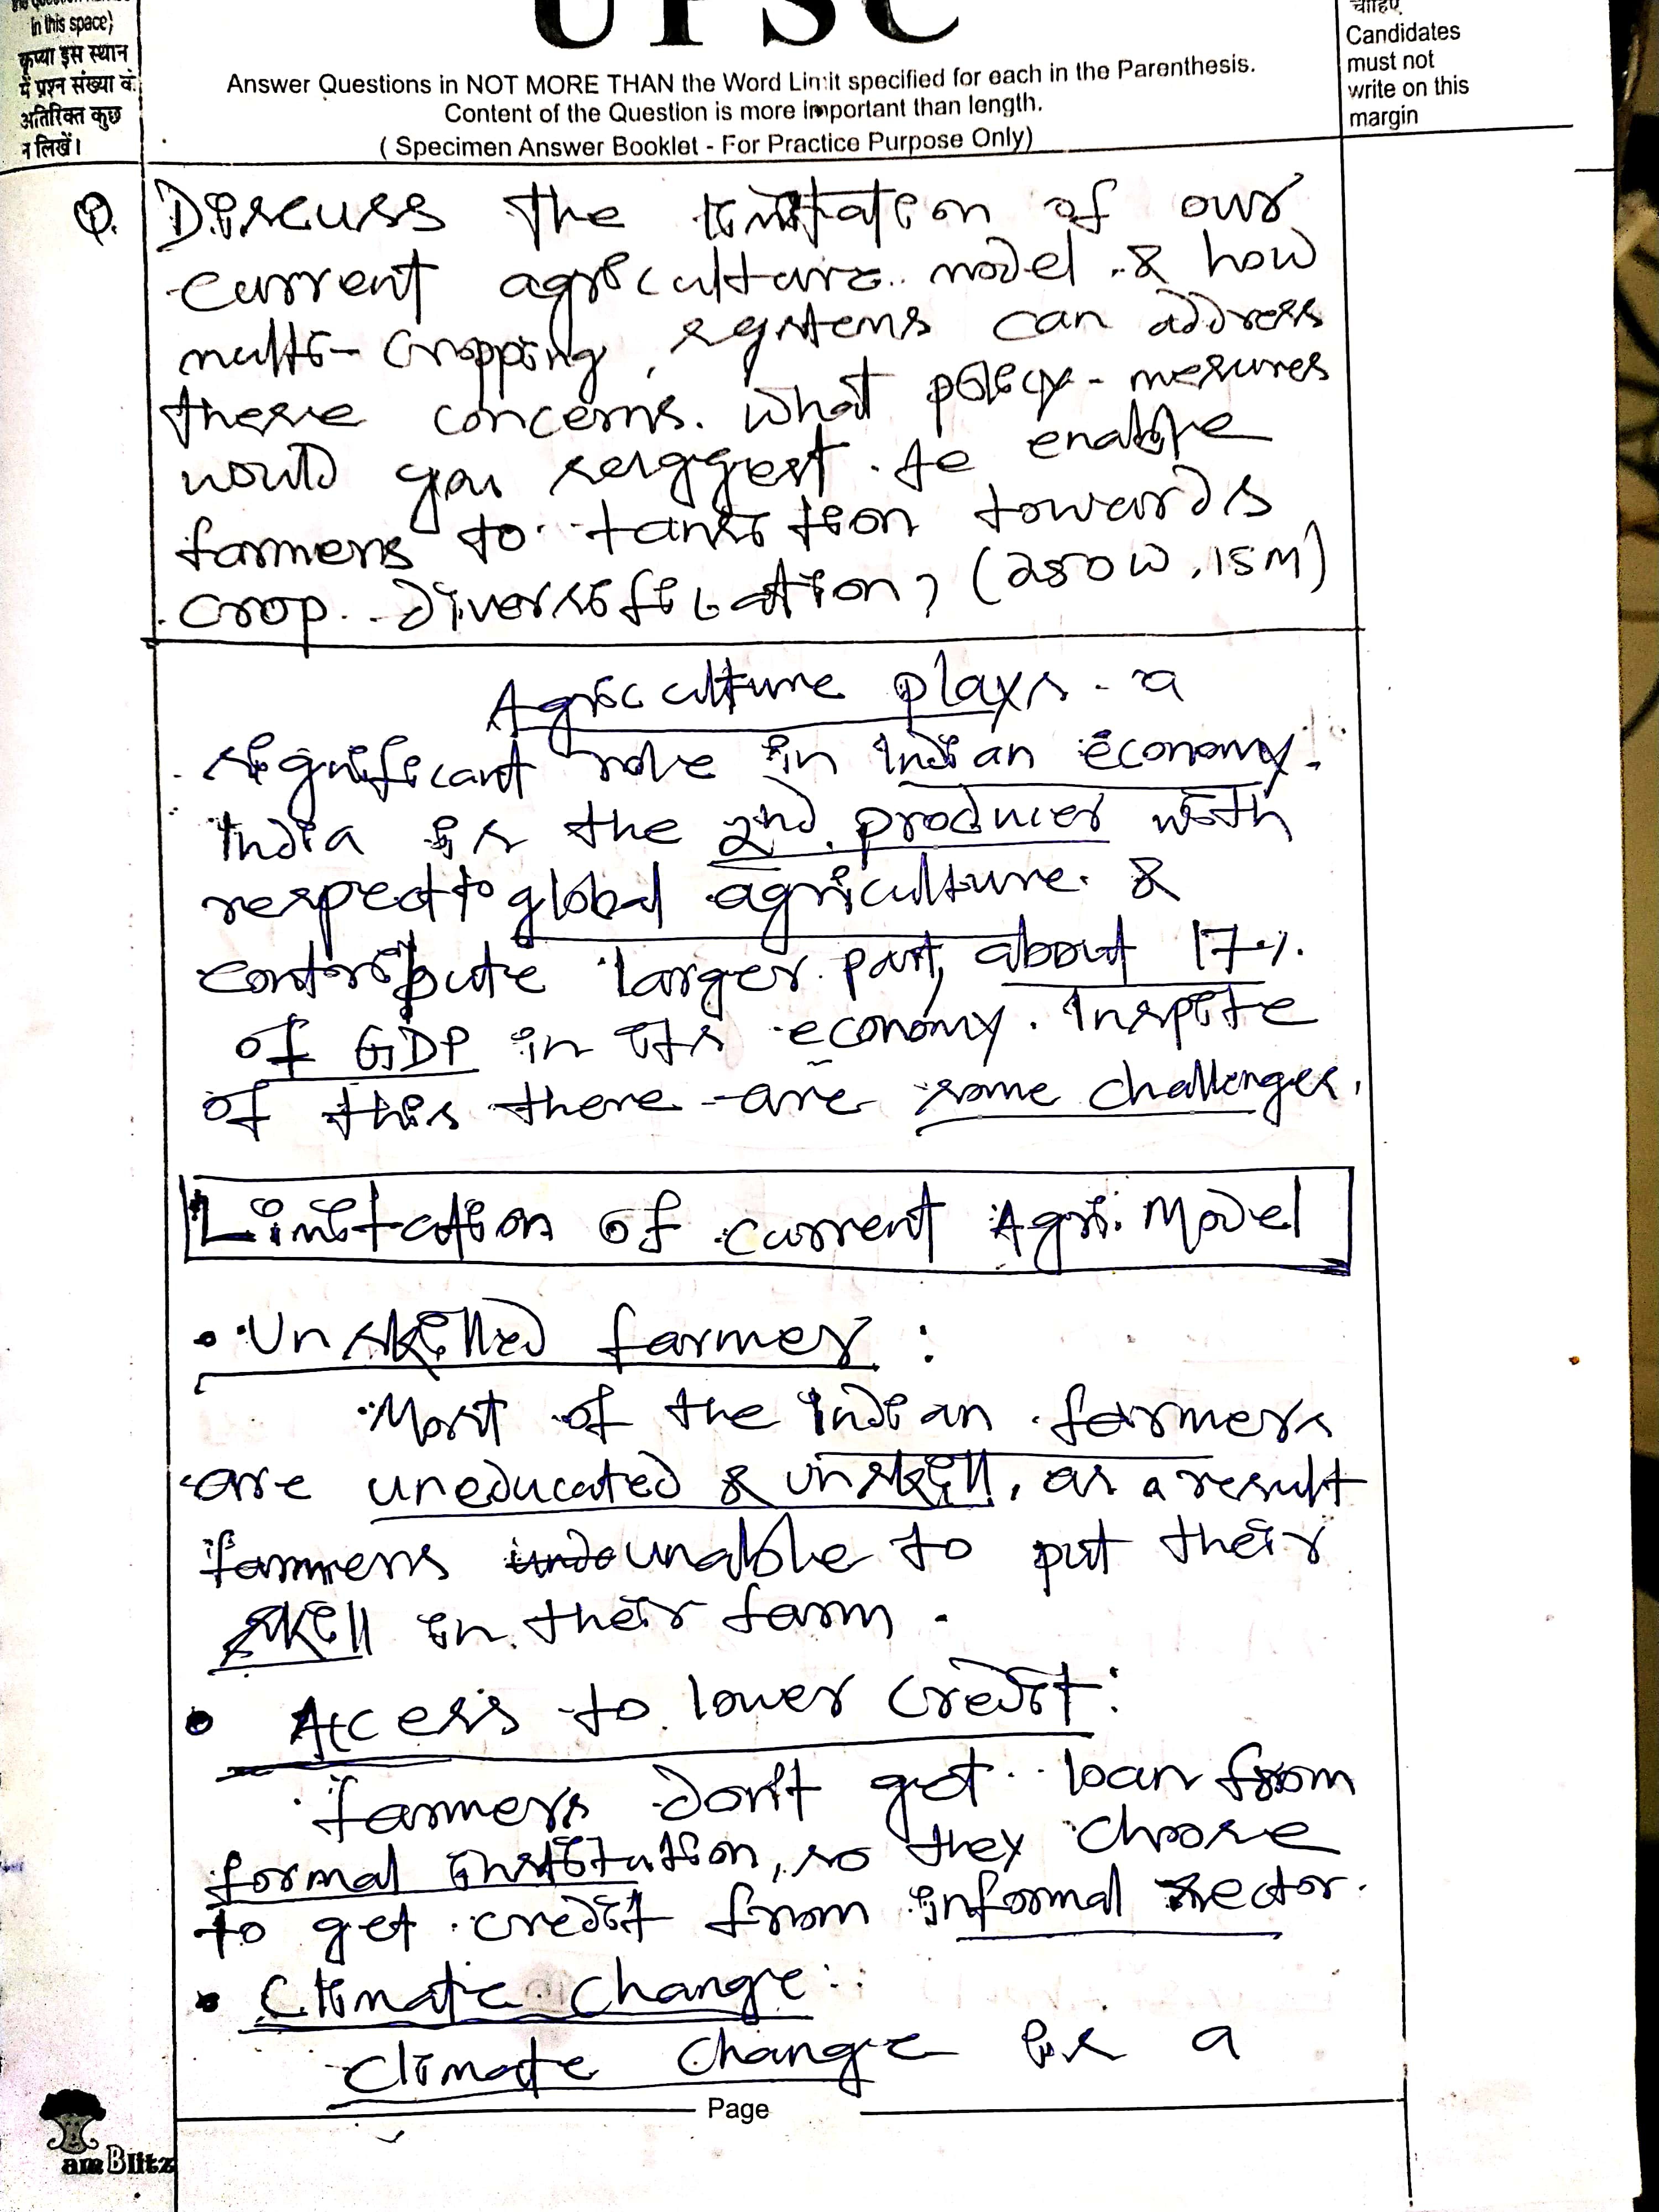 in this space)
कृप्या इस स्थान
में प्रश्न संख्या के
अतिरिक्त कुछ
न लिखें।
UPSC
Answer Questions in NOT MORE THAN the Word Limit specified for each in the Parenthesis.
Content of the Question is more important than length.
( Specimen Answer Booklet - For Practice Purpose Only)
चाहिए
Candidates
must not
write on this
margin
Q. Discuss the limitation of our
current agriculture model & how
multi-cropping, systems can address
these concerns. What policy-mesures
would you suggest to enable
farmers to tansition towards
crop diversification? (250W, 15M)
Agriculture plays a
significant role in Indian economy.
India is the 2nd producer with
respect to global agriculture &
contribute larger part, about 17%
of GDP in its economy. Inspite
of this there are some challenges.
Limitation of current Agri. Model
• Unskilled farmer :
Most of the Indian farmers
are uneducated & unskill, as a result
farmers unable to put their
skill in their farm.
• Access to lower credit:
farmers don't get loan from
formal institution, so they choose
to get credit from informal sector.
• Climate change:
Climate change is a
Page
am Blitz